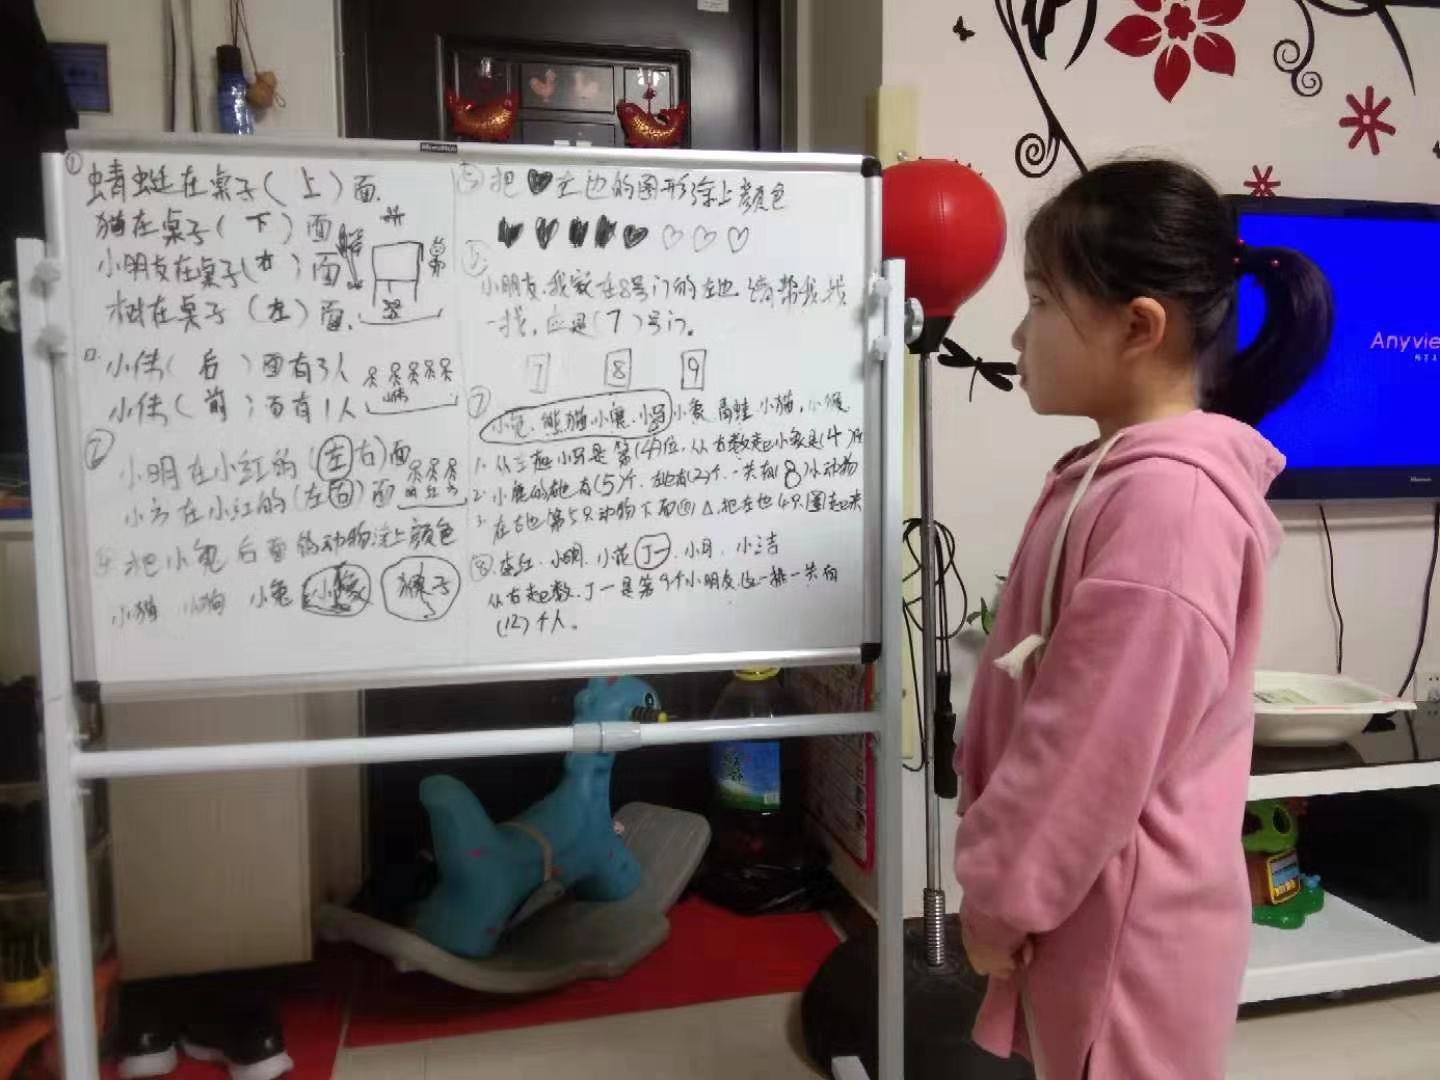 ①
蜻蜓在桌子(上)面.
猫在桌子(下)面
小朋友在桌子(右)面
树在桌子(左)面.
小伟(后)面有3人
小伟(前)面有1人
小伟
②
小明在小红的(左右)面
小方在小红的(左右)面
明 红 方
把小兔后面的动物涂上颜色
小猫 小狗 小兔 小象 猴子
⑤把♥左边的图形涂上颜色
小朋友.我家在8号门的左边 请帮我找
一找,应是(7)号门。
7 8 9
⑦
小兔.熊猫 小鹿.小马 小象 青蛙.小猫.小猴
1.从左起小马是第(4)位,从右数起小象是(4)位
2.小鹿的右边有(5)个.左边有(2)个.一共有(8)小动物
3.在右边第5只动物下面画△.把左边4只圈起来
⑧.李红.小明.小花 丁一.小月.小洁
从右起数.丁一是第9个小朋友.这一排一共有
(12)个人。
Anyvie